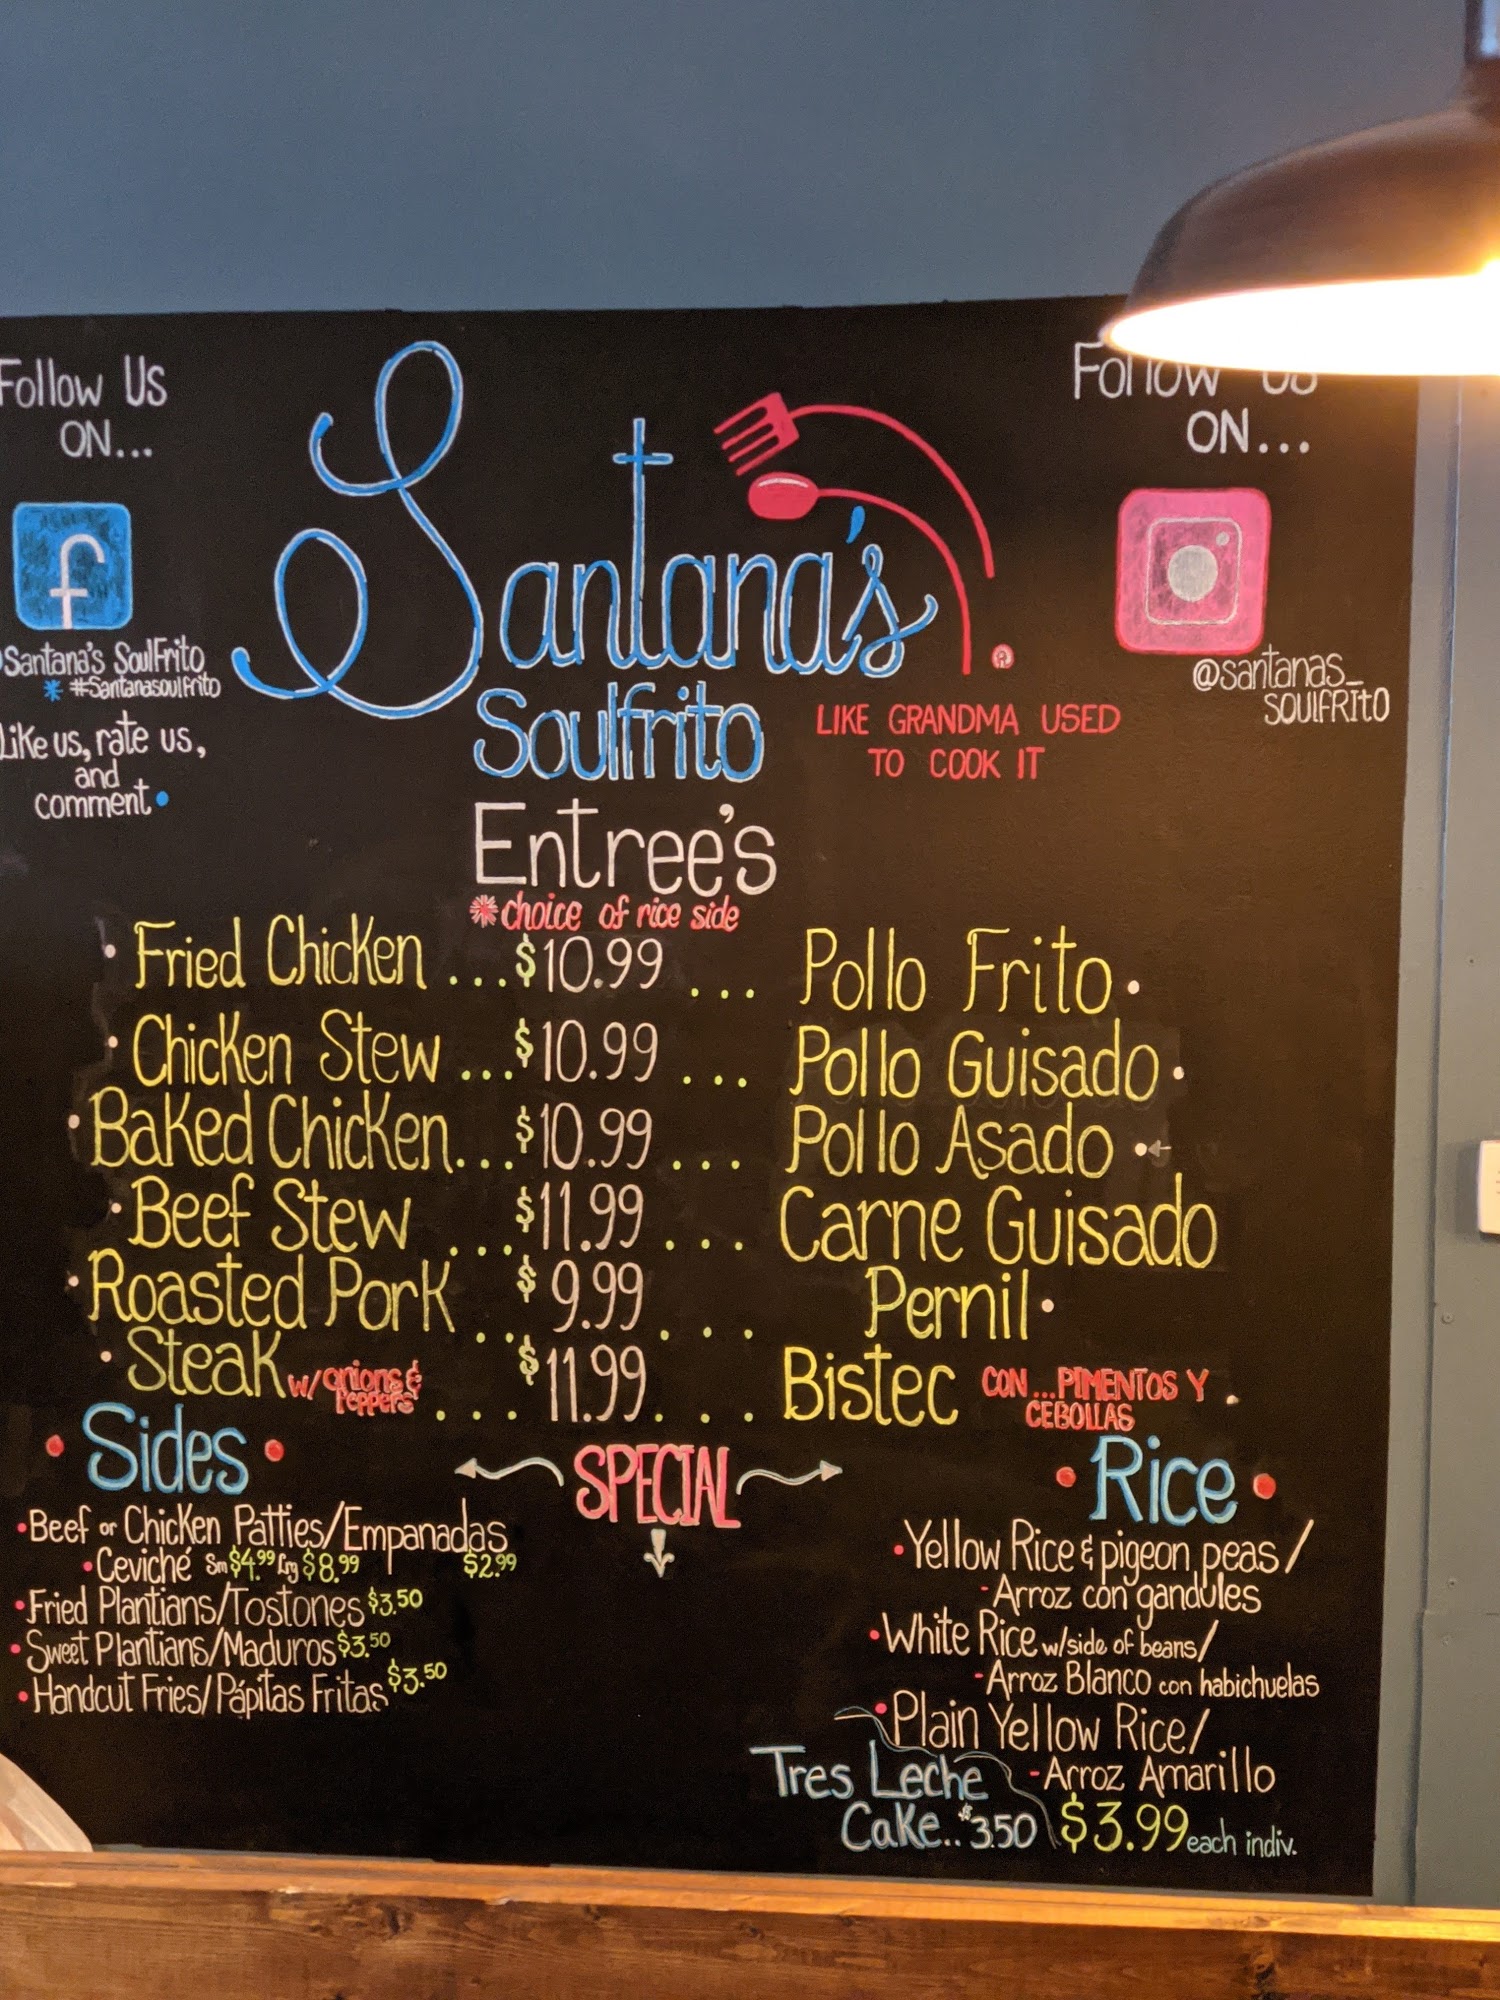 Follow Us
ON...
Santana's SoulFrito
* #Santanasoulfrito
Like us, rate us,
and
comment.
Santana's
Soulfrito
®
LIKE GRANDMA USED
TO COOK IT
Follow Us
ON...
@santanas_
SOULFRITO
Entree's
*choice of rice side
• Fried Chicken ...$10.99 ... Pollo Frito •
• Chicken Stew ...$10.99 ... Pollo Guisado •
• Baked Chicken...$10.99 ... Pollo Asado •
• Beef Stew ...$11.99 ... Carne Guisado
• Roasted Pork ..$9.99 ... Pernil •
• Steak w/ onions & peppers ...$11.99 ... Bistec CON...PIMENTOS Y CEBOLLAS •
• Sides •
• Beef or Chicken Patties/Empanadas $2.99
• Ceviché Sm $4.99 Lrg $8.99
• Fried Plantians/Tostones $3.50
• Sweet Plantians/Maduros $3.50
• Handcut Fries/Pápitas Fritas $3.50
SPECIAL
• Rice •
• Yellow Rice & pigeon peas/
- Arroz con gandules
• White Rice w/side of beans/
- Arroz Blanco con habichuelas
• Plain Yellow Rice/
- Arroz Amarillo
$3.99 each indiv.
Tres Leche
Cake..$3.50